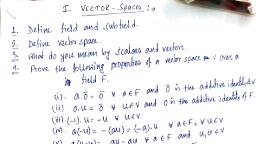 I. VECTOR-Spaces :-
1. Define field and subfield.
2. Define vector space.
3. What do you mean by scalars and vectors.
4. Prove the following properties of a vector space V over a
field F.
(i). a.0̄ = 0̄ ∀ a∈F and 0̄ is the additive identity of V
(ii). 0.u = 0̄ ∀ u∈V and 0 is the additive identity of F.
(iii). (-1).u = -u ∀ u∈V
(iv). a(-u) = -(au) = (-a).u ∀ a∈F, ∀ u∈V
au - av ∀ a∈F and u,v∈V